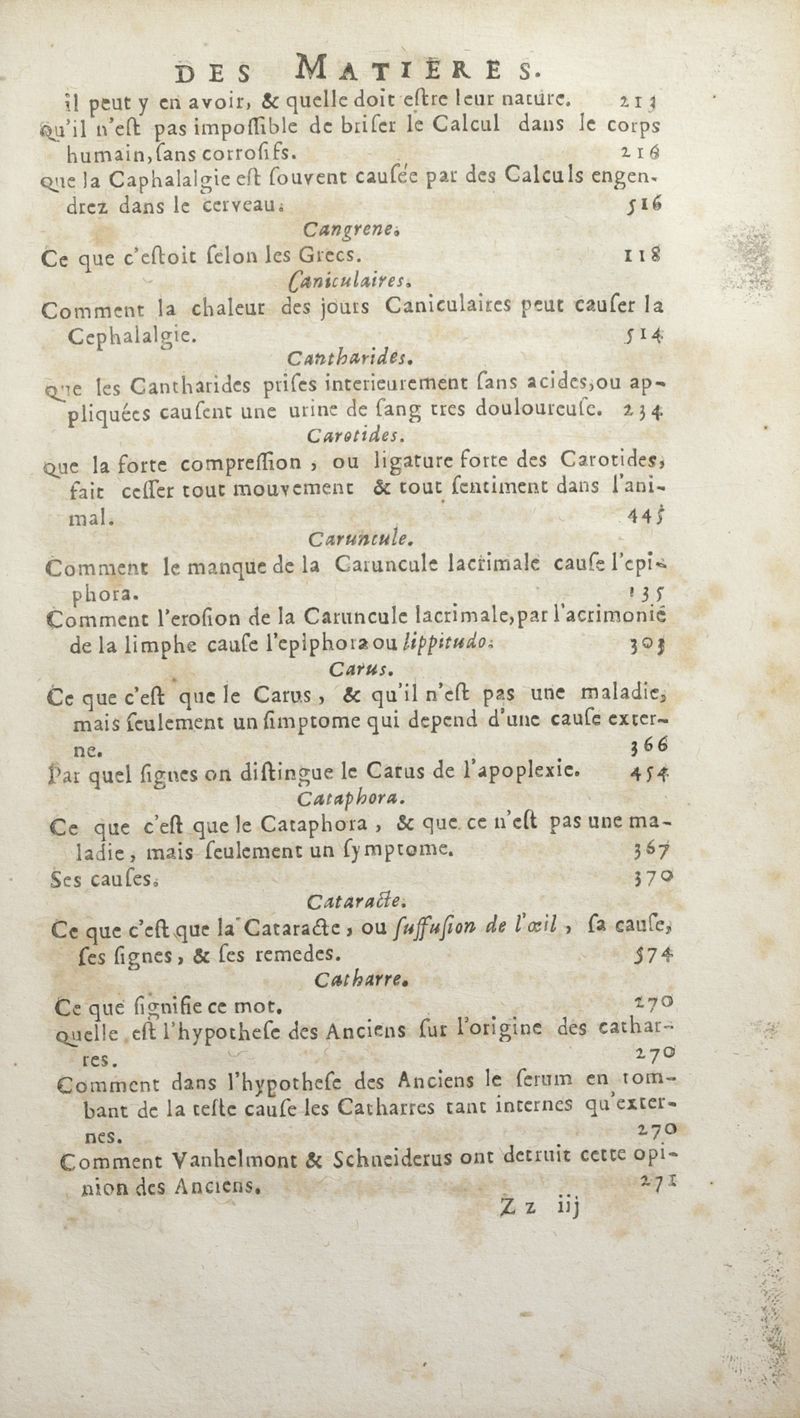 DES MATIERES.
il peut y en avoir, & quelle doit eſtre leur nature. 213
Qu'il n'eſt pas impoſſible de briſer le Calcul dans le corps
humain, ſans corroſifs. 216
Que la Caphalalgie eſt ſouvent cauſée par des Calculs engen-
drez dans le cerveau. 516
Cangrene.
Ce que c'eſtoit ſelon les Grecs. 118
Caniculaires.
Comment la chaleur des jours Caniculaires peut cauſer la
Cephalalgie. 514
Cantharides.
Que les Cantharides priſes interieurement ſans acides, ou ap-
pliquées cauſent une urine de ſang tres douloureuſe. 234
Carotides.
Que la forte compreſſion, ou ligature forte des Carotides,
fait ceſſer tout mouvement & tout ſentiment dans l'ani-
mal. 445
Caruncule.
Comment le manque de la Caruncule lacrimale cauſe l'epi-
phora. 135
Comment l'eroſion de la Caruncule lacrimale, par l'acrimonie
de la limphe cauſe l'epiphora ou lippitudo. 303
Carus.
Ce que c'eſt que le Carus, & qu'il n'eſt pas une maladie,
mais ſeulement un ſimptome qui depend d'une cauſe exter-
ne. 366
Par quel ſignes on diſtingue le Carus de l'apoplexie. 454
Cataphora.
Ce que c'eſt que le Cataphora, & que ce n'eſt pas une ma-
ladie, mais ſeulement un ſymptome. 367
Ses cauſes. 370
Cataracte.
Ce que c'eſt que la Cataracte, ou ſuffuſion de l'œil, ſa cauſe,
ſes ſignes, & ſes remedes. 574
Catharre.
Ce que ſignifie ce mot. 270
Quelle eſt l'hypotheſe des Anciens ſur l'origine des cathar-
res. 270
Comment dans l'hypotheſe des Anciens le ſerum en tom-
bant de la teſte cauſe les Catharres tant internes qu'exter-
nes. 270
Comment Vanhelmont & Schneiderus ont detruit cette opi-
nion des Anciens. 271
Zz iij